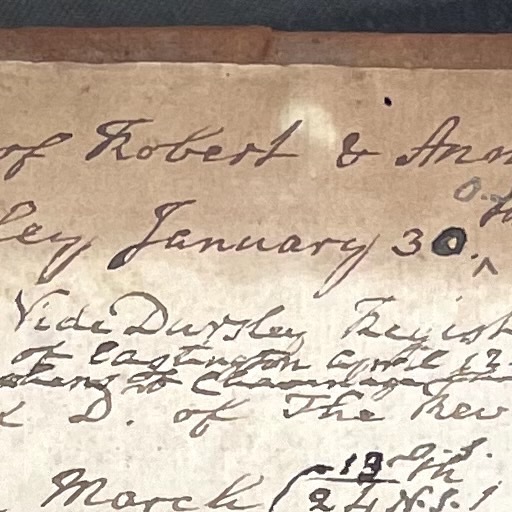 of Robert & Ann
ley January 30.
Vide Dursley Regist
of Eastington april 13
D. of The Rev
March (13th O.S.
24 N.S.